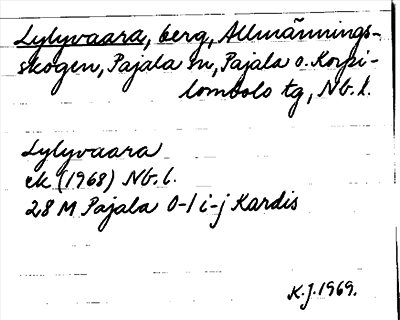 Lylyvaara, berg, Allmännings-
skogen, Pajala sn, Pajala o. Korpi-
lombolo tg, Nb. l.
Lylyvaara
ek (1968) Nb. l.
28 M Pajala 0-1 i-j Kardis
K.J. 1969.